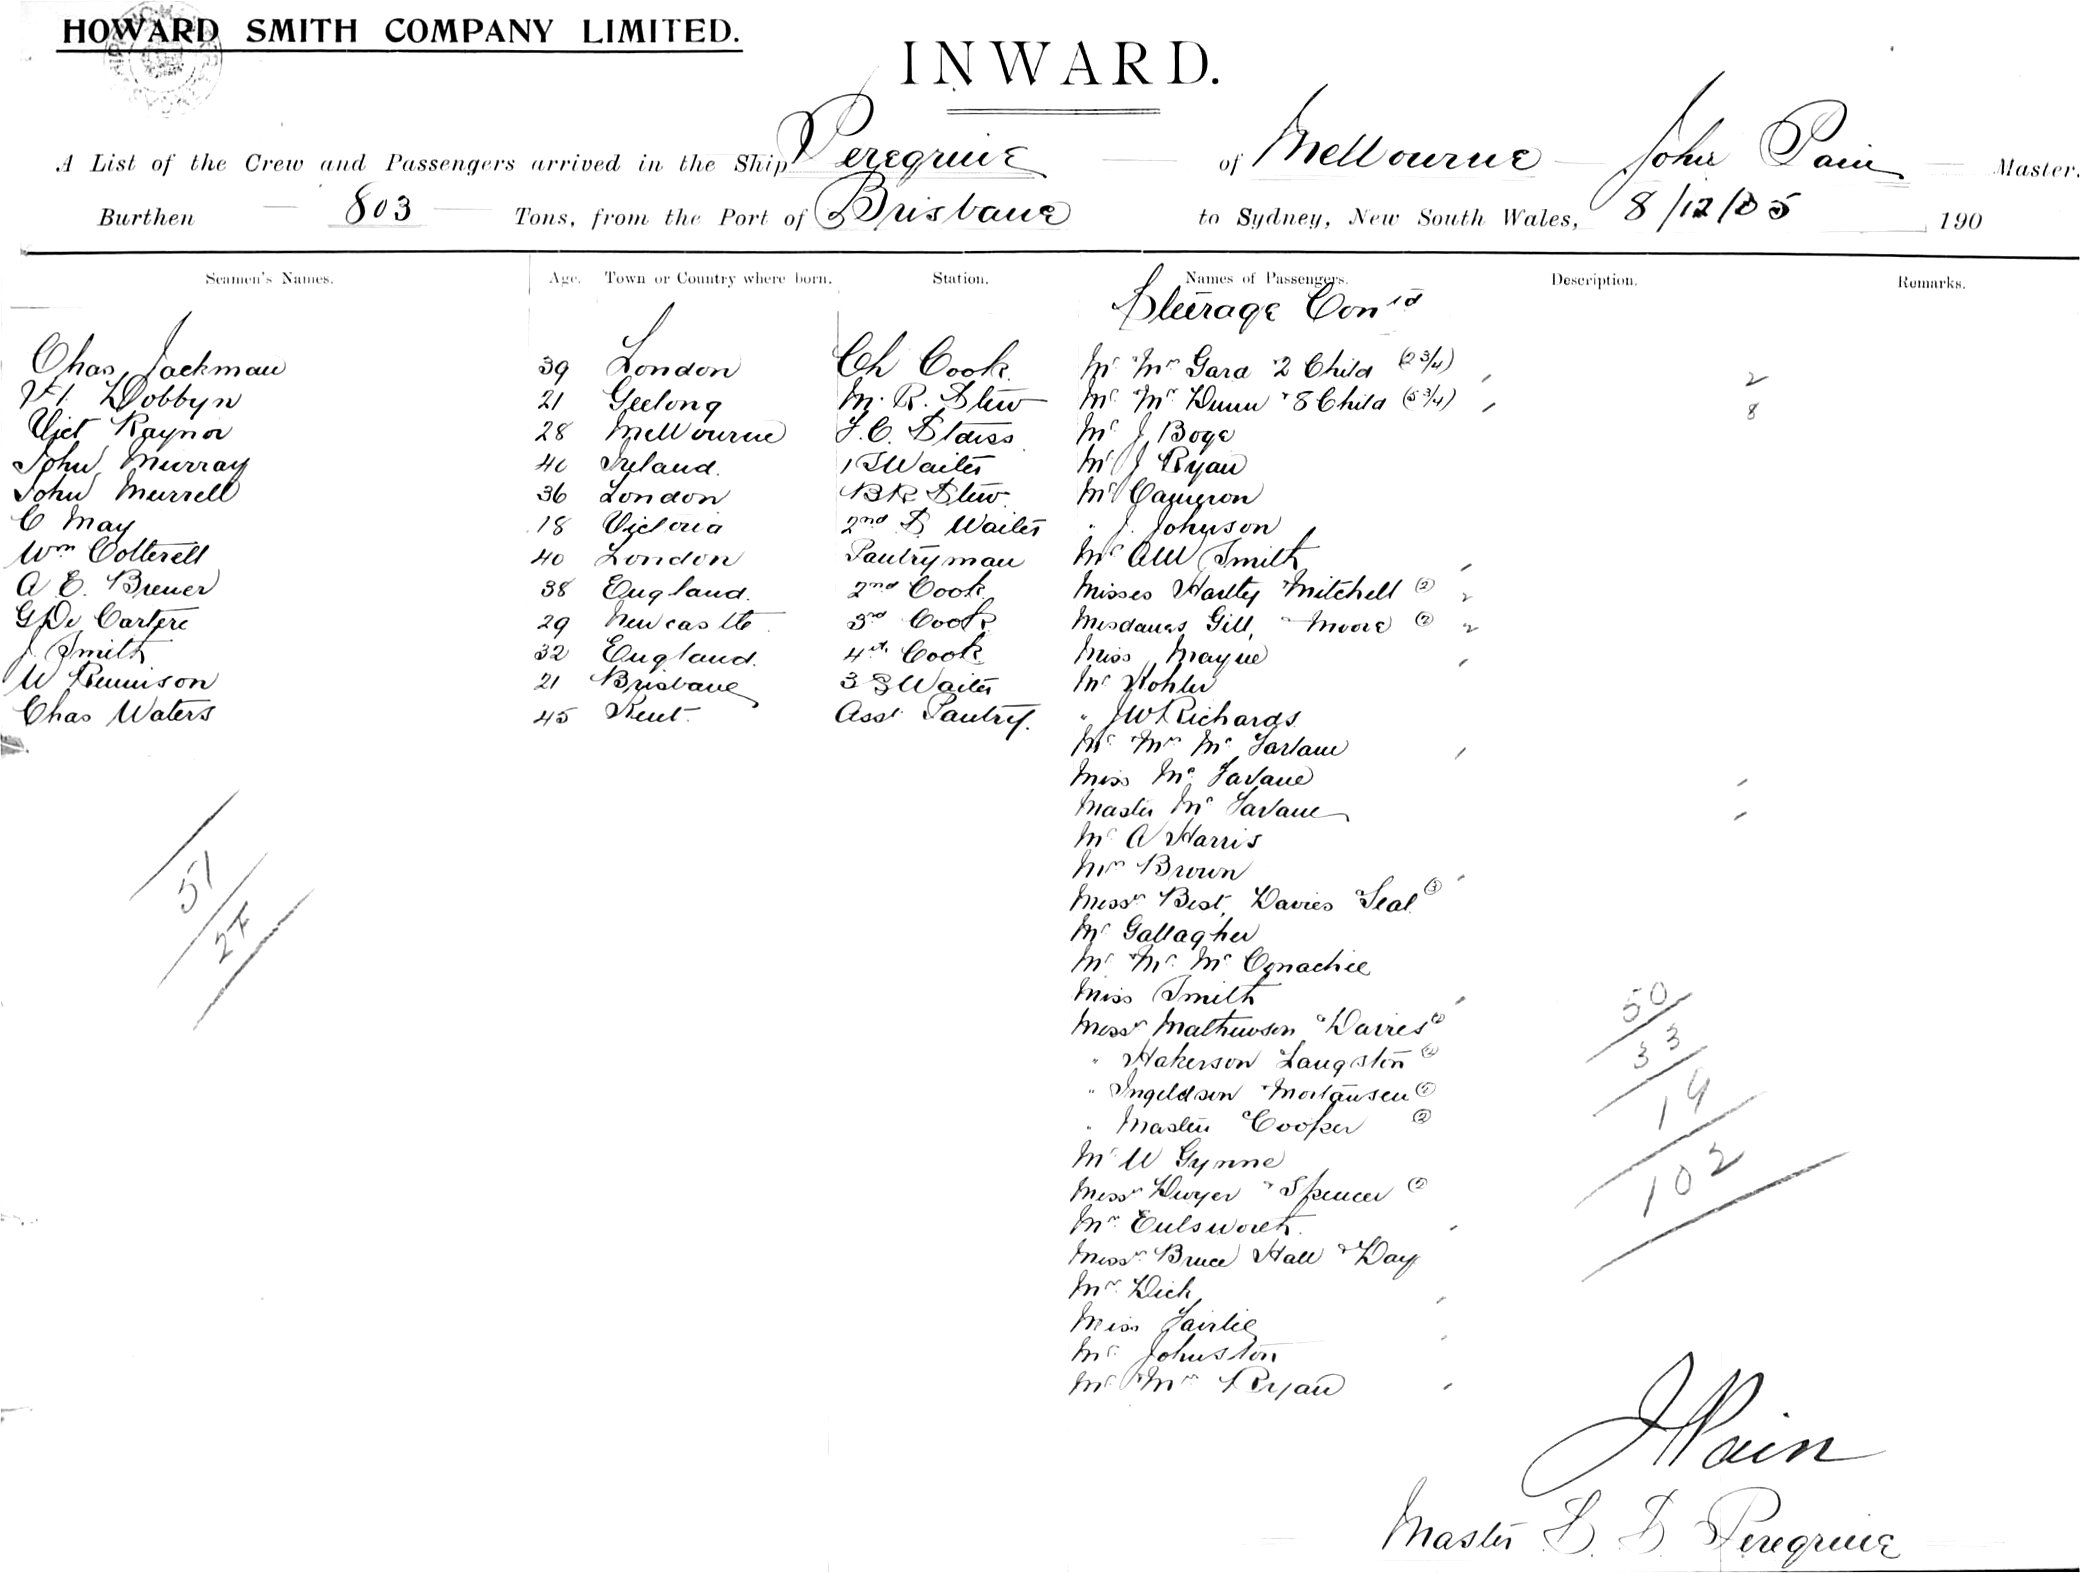 HOWARD SMITH COMPANY LIMITED.
INWARD.
A List of the Crew and Passengers arrived in the Ship Peregrine of Melbourne John Pain Master.
Burthen 803 Tons, from the Port of Brisbane to Sydney, New South Wales, 8/12/05 190
Seamen's Names. Age. Town or Country where born. Station. Names of Passengers. Description. Remarks.
Steerage Con'd
Chas Jackman 39 London Ch Cook Mr Mrs Gard 2 Child (2 3/4) 2
Dobbyn 21 Geelong M. R. Stew Mr Mrs Dunn & 8 Child (5 3/4) 8
Vict Raynor 28 Melbourne F.C. Stwiss Mr J Boge
John Murray 40 Ireland. 1 S Waiter Mr J Ryan
John Murrell 36 London BR Stew Mr Cameron
C May 18 Victoria 2nd S Waiter " J. Johnson
Wm Cotterell 40 London Pantryman Mr AW Smith
A E. Brewer 38 England. 2nd Cook Misses Hartley & Mitchell (2) 2
G De Cartere 29 Newcastle 3rd Cook Mesdames Gill, & Moore (2) 2
J. Smith 32 England. 4th Cook Miss Mayne
W Rennison 21 Brisbane 3 S Waiter Mr Kohler
Chas Waters 45 Kent. Asst Pantry. " JW Richards
Mr Mrs Mc Farlane
Miss Mc Farlane
Master Mc Farlane
Mr A Harris
Mrs Brown
Messrs Best, Davies & Seal (3)
Mr Gallagher
Mr Mrs Mc Conachie
Miss Smith
Messrs Mathewson & Davies (2)
" Hakerson Langston (2)
" Ingeldson & Mortansen (2)
" Masters & Cooper (2)
Mr W Gynne
Messrs Dwyer & Spencer (2)
Mrs Eulsworth.
Messrs Bruce Hall & Day
Mrs Dick
Miss Fairlie
Mr Johnston
Mr Mrs Ryan
51
27
50
33
19
102
J Pain
Master S. S. Peregrine